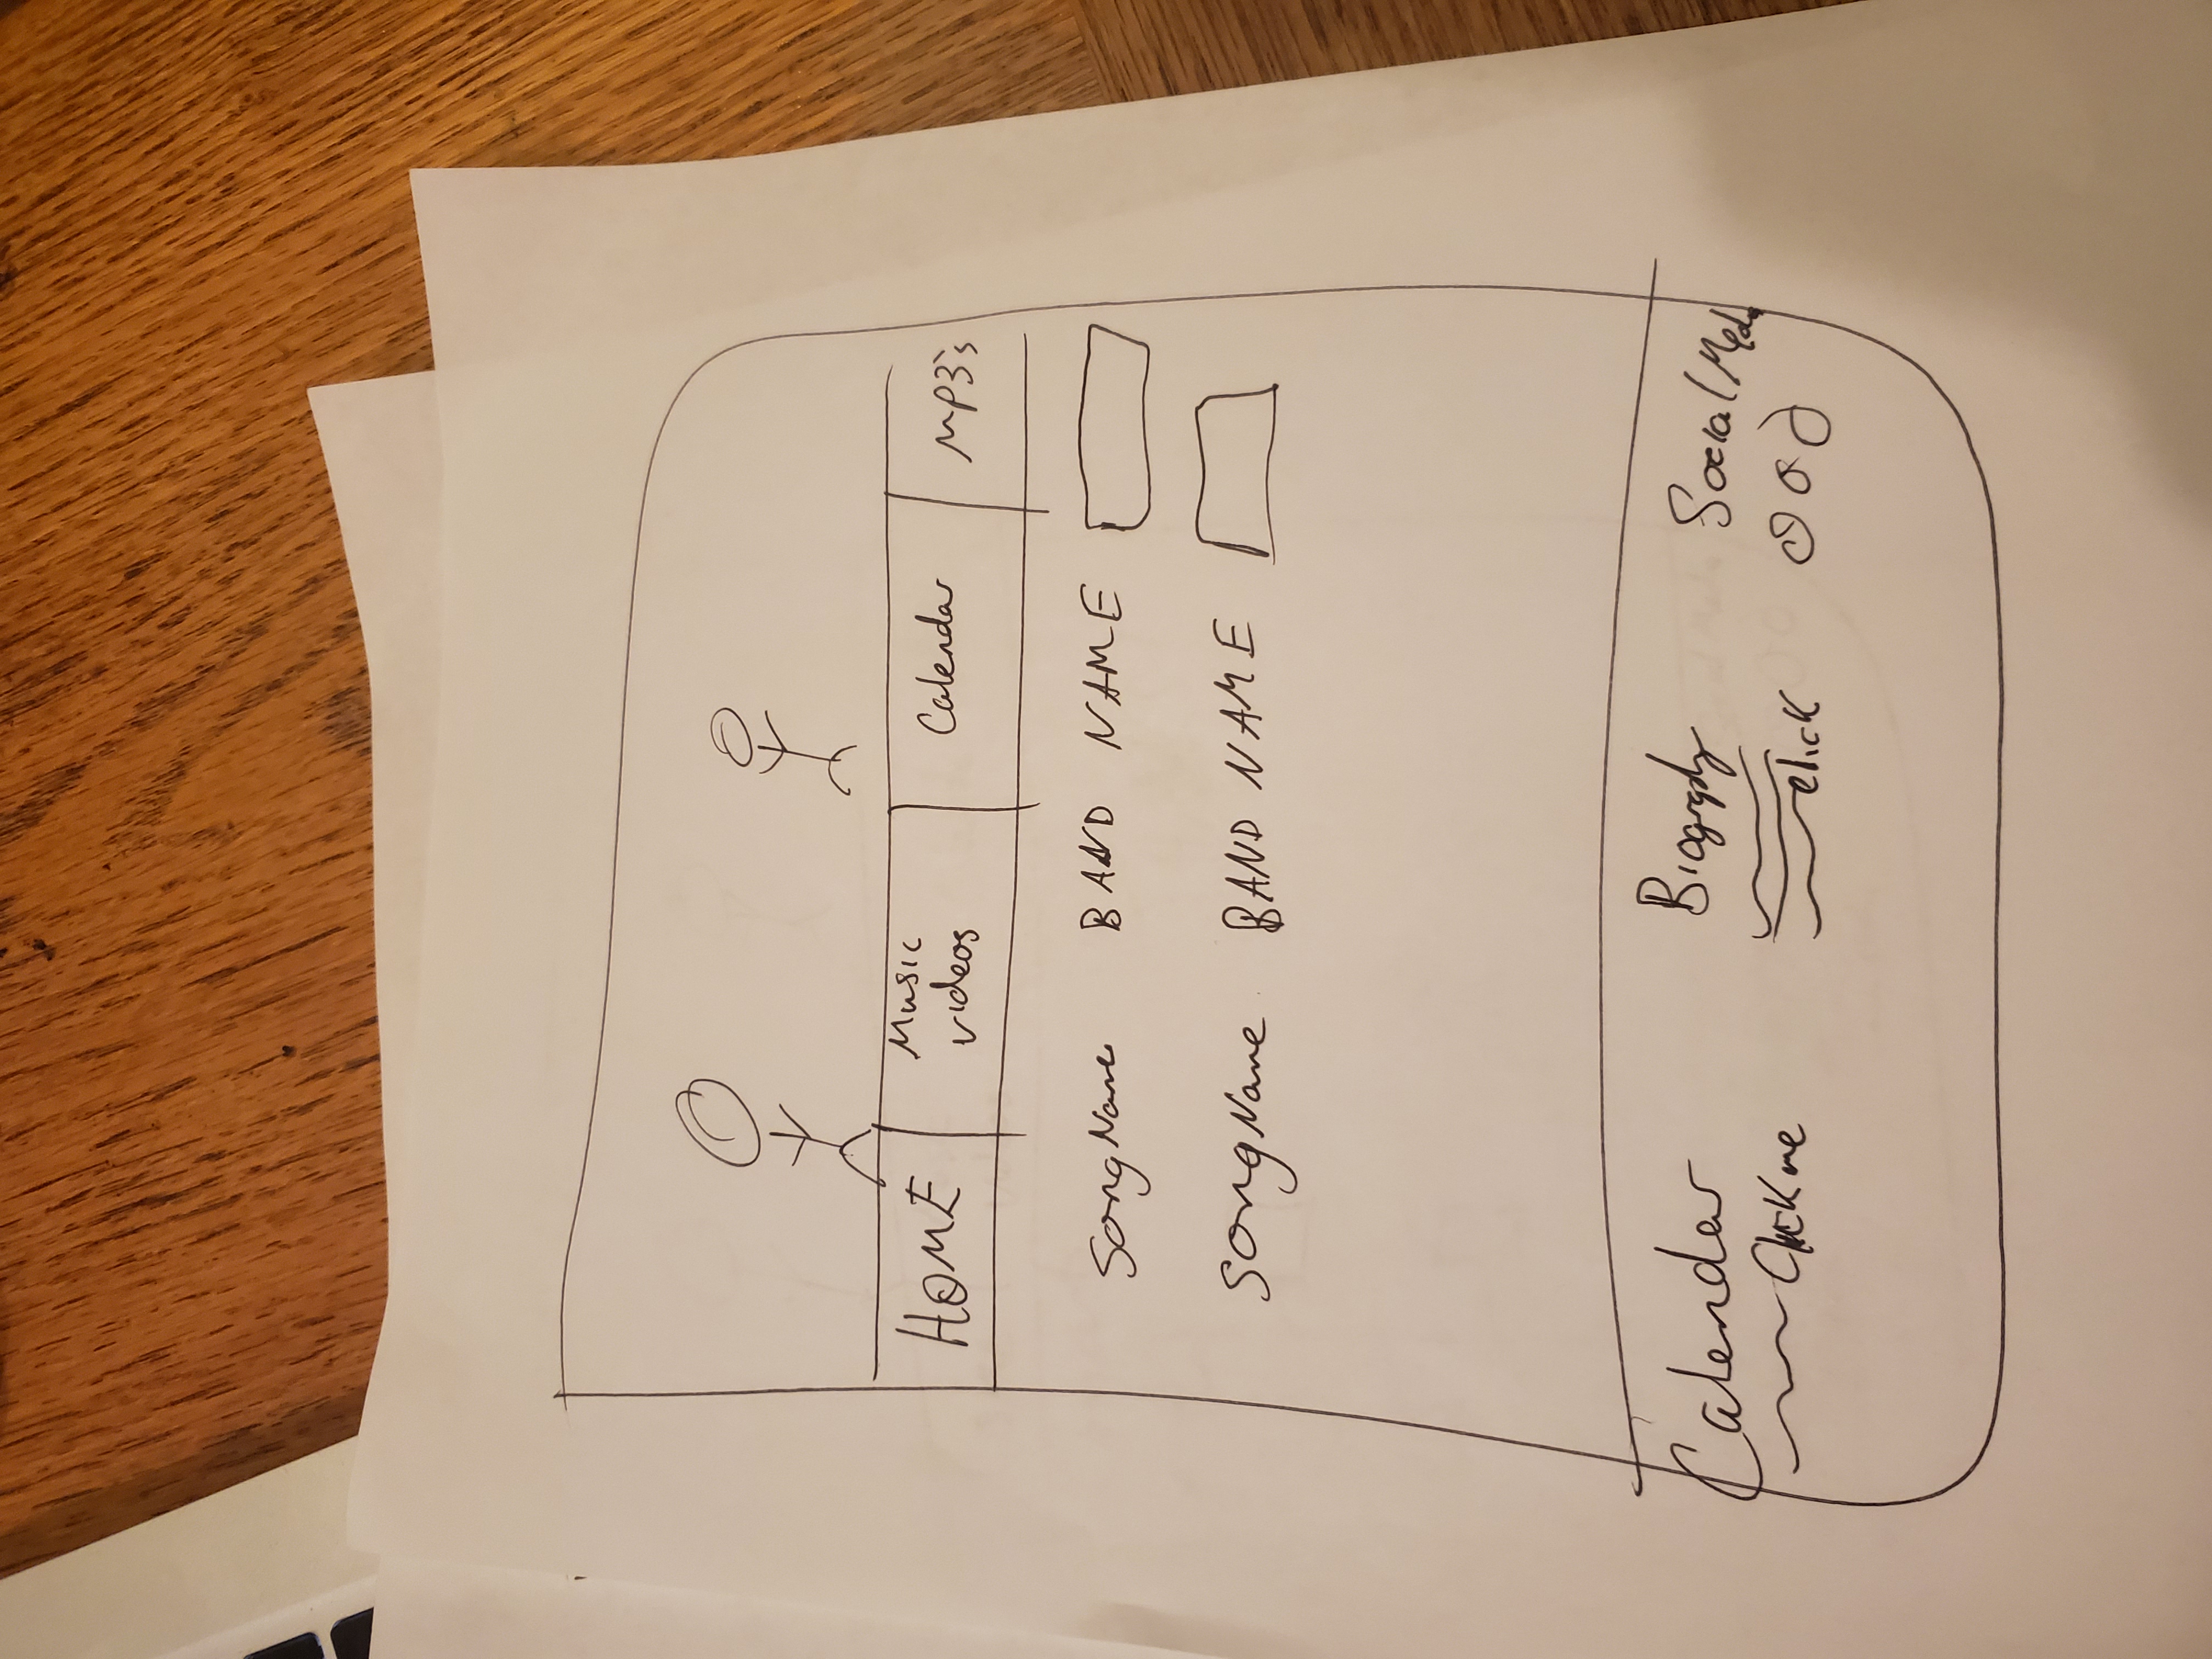 HOME
Music
videos
Calendar
MP3's
SongName BAND NAME
SongName BAND NAME
Calendar
Click me
Biography
click
Social Media